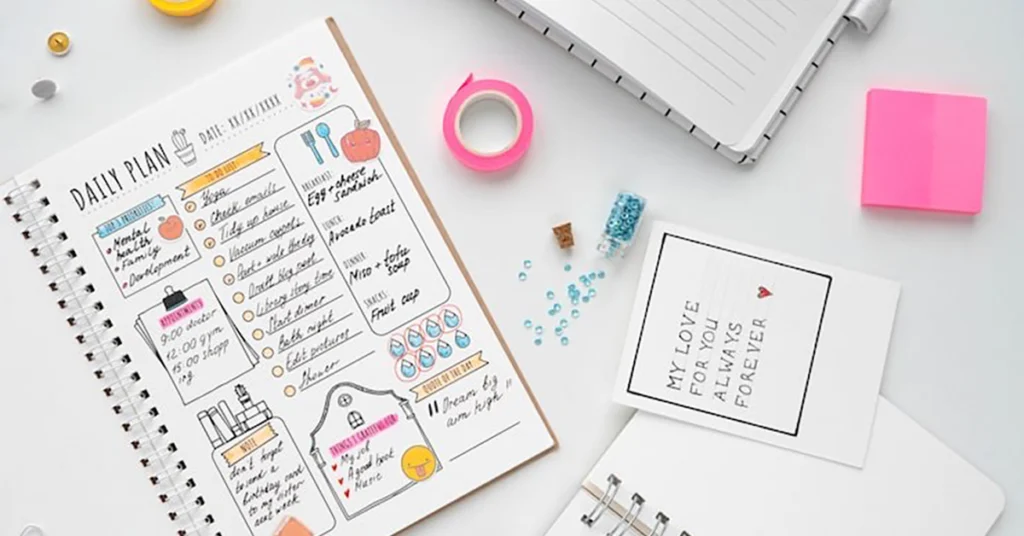 DAILY PLAN
DATE: XX/XX/XXXX
TOP 3 PRIORITIES
Mental
health
Family
Development
APPOINTMENTS
9:00 doctor
12:00 gym
15:00 shopp
ing
NOTE
don't forget
to send a
birthday card
to my sister
next week
TO DO LIST
Yoga
Check emails
Tidy up house
Vacuum carpets
walk the dog
Draft blog post
Library story time
Start dinner
Bath night
Edit pictures
Shower
BREAKFAST:
Egg + cheese
sandwich
LUNCH:
Avocado toast
DINNER:
Miso + tofu
soup
SNACKS:
Fruit cup
THINGS I GRATEFUL FOR
My job
A good book
Music
QUOTE OF THE DAY
" Dream big
aim high "
MY LOVE
FOR YOU
ALWAYS
FOREVER